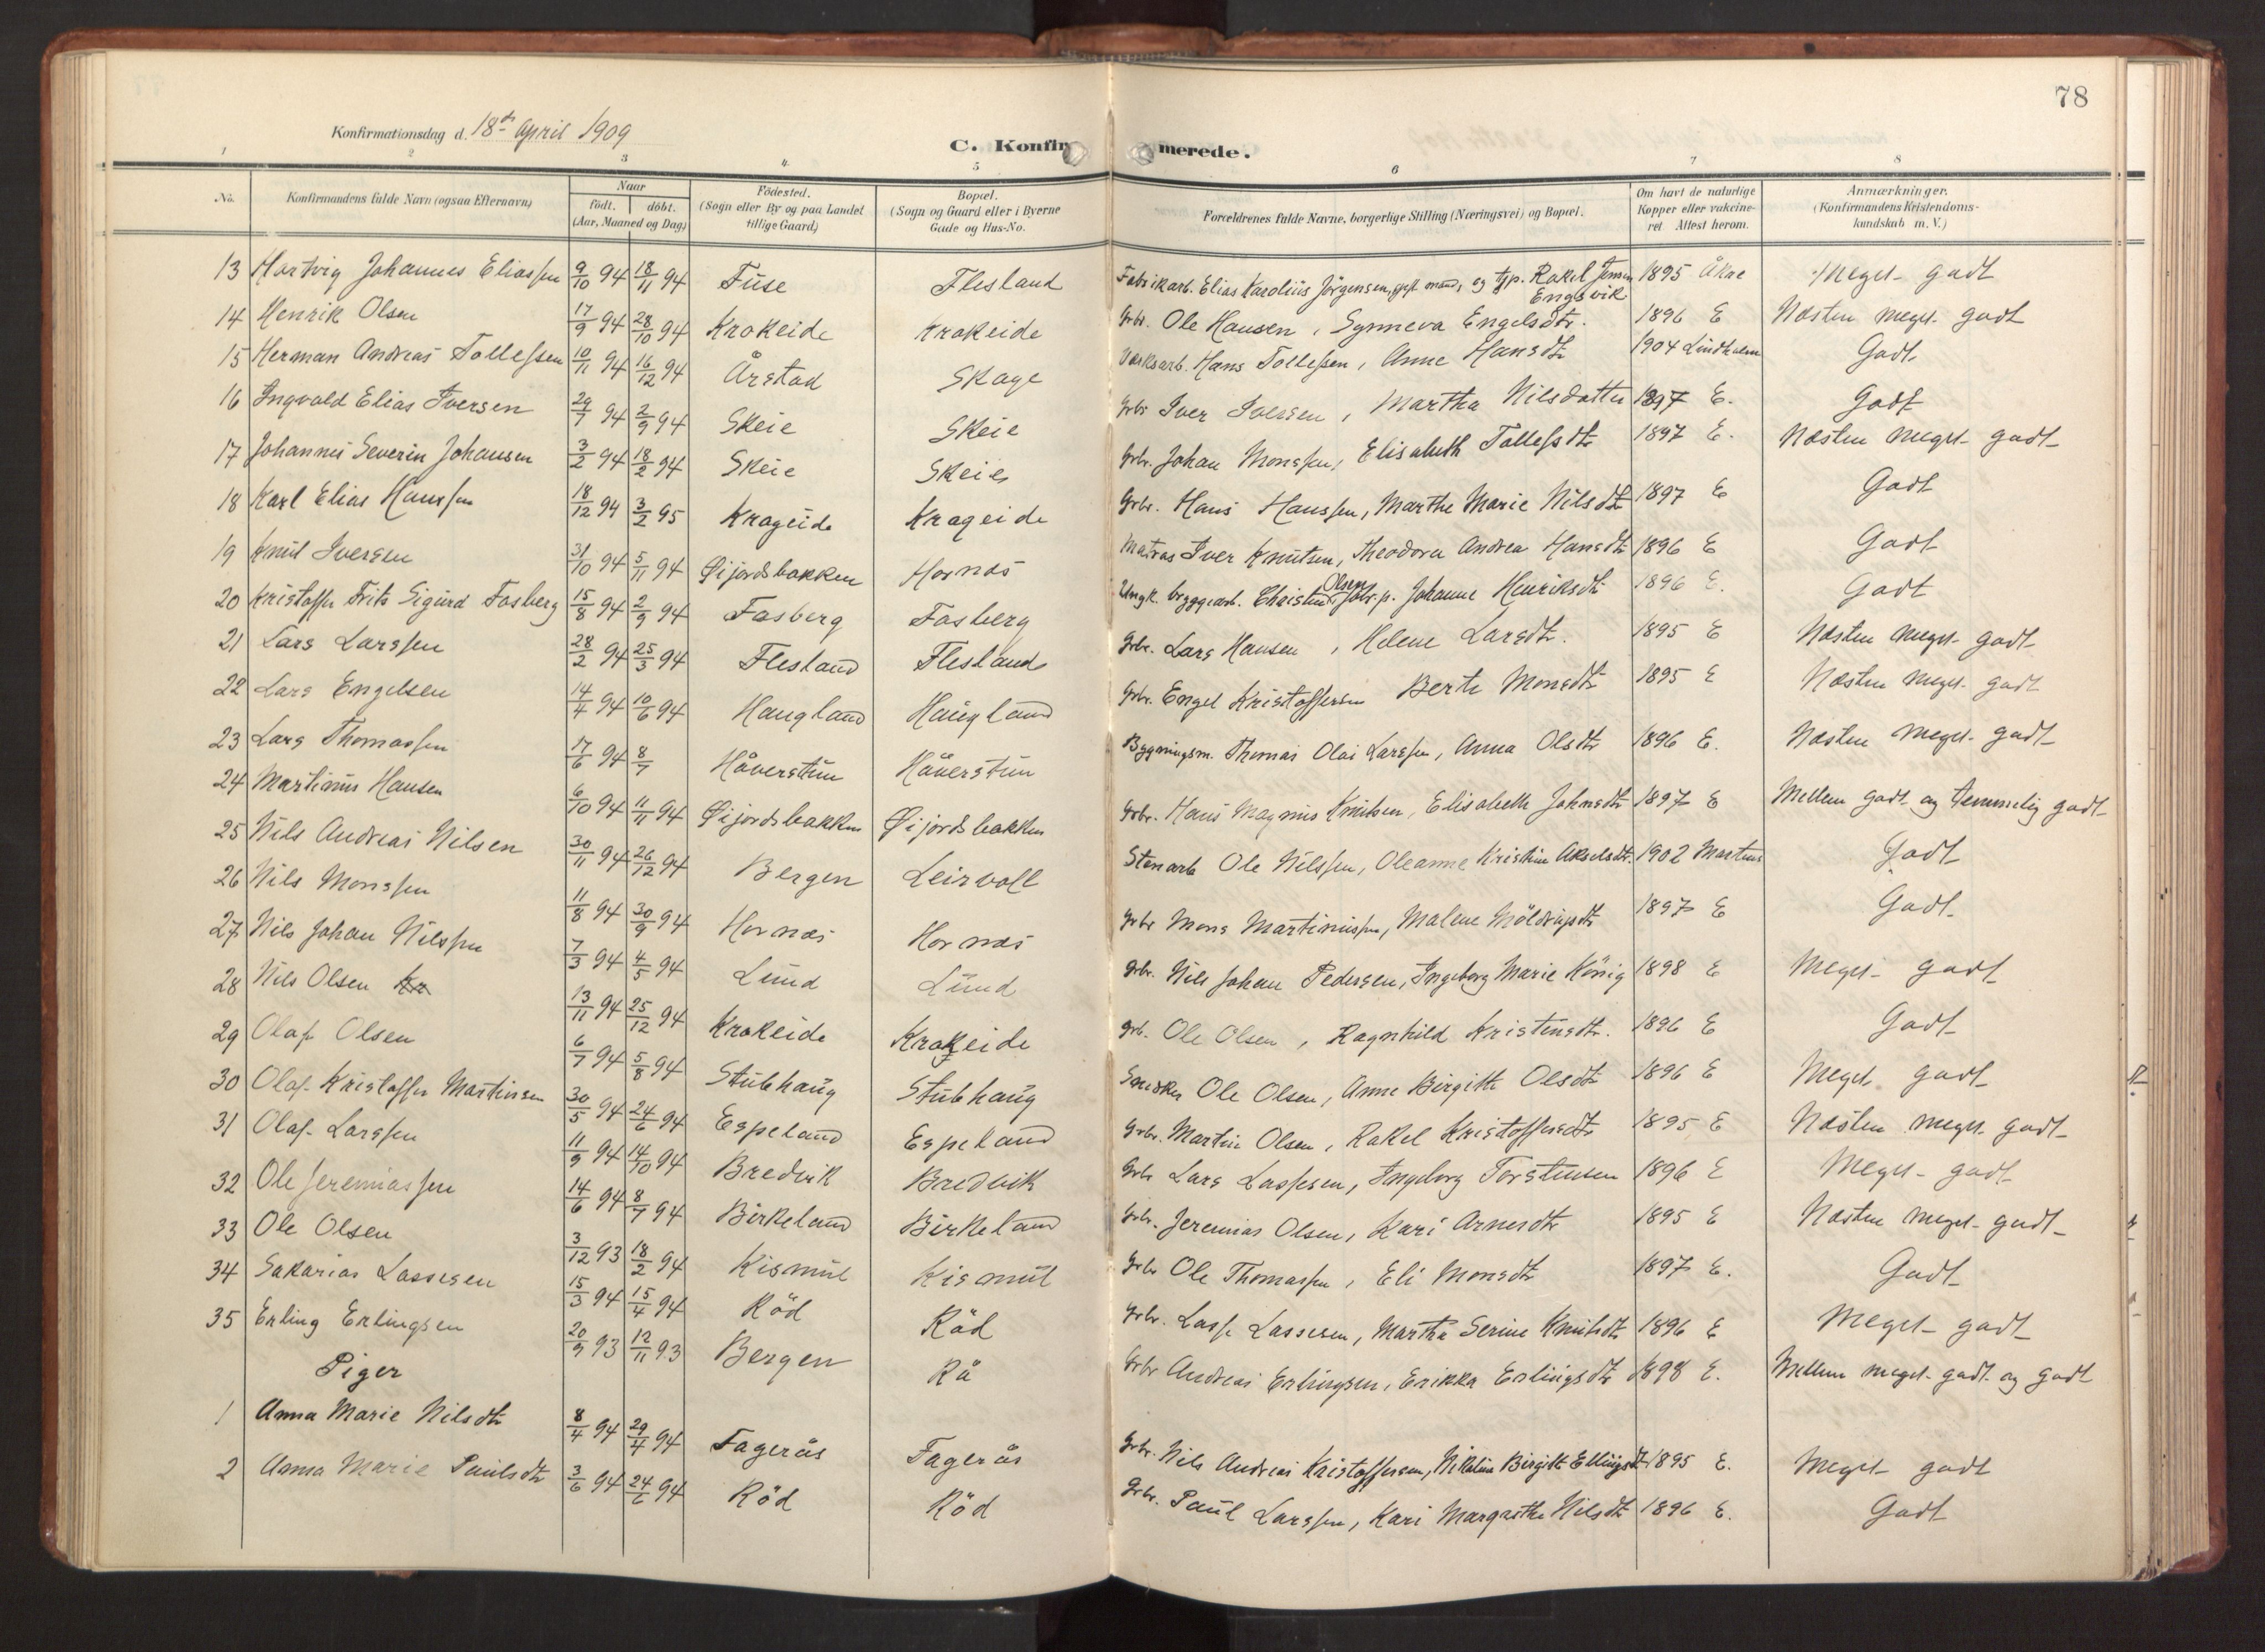 78
Konfirmationsdag d. 18de April 1909
C. Konfirmerede.
1 2 3 4 5 6 7 8
No. Konfirmandens fulde Navn (ogsaa Efternavn) Naar födt. döbt. (Aar, Maaned og Dag) Födested. (Sogn eller By og paa Landet tillige Gaard) Bopæl. (Sogn og Gaard eller i Byerne Gade og Hus-No. Forældrenes fulde Navne, borgerlige Stilling (Næringsvei) og Bopæl. Om havt de naturlige Kopper eller vakcineret. Attest herom. Anmærkninger. (Konfirmandens Kristendomskundskab m. V.)
13 Hartvig Johannes Eliassen 9/10 94 18/11 94 Fuse Flesland Fabrikarb. Elias Karolius Jörgensen, gift mand, og tjp. Rakel Jensen Engsvik 1895 Åkre Meget godt
14 Henrik Olsen 17/9 94 28/10 94 Krokeide Krokeide Grbr. Ole Hansen, Synneva Engelsdtr. 1896 E Næsten meget godt
15 Herman Andreas Tollefsen 10/11 94 16/12 94 Årstad Skage Værksarb. Hans Tollefsen, Anne Hansdtr 1904 Lindholm Godt
16 Ingvald Elias Iversen 29/7 94 2/9 94 Skeie Skeie Grbr Iver Iversen, Martha Nilsdatter 1897 E. Godt
17 Johannes Severin Johansen 3/2 94 18/2 94 Skeie Skeie Grbr. Johan Monssen, Elisabeth Tollefsdtr 1897 E. Næsten meget godt
18 Karl Elias Hanssen 18/12 94 3/2 95 Krageide Krageide Grbr. Hans Hanssen, Marthe Marie Nilsdtr 1897 E Godt
19 Knut Iversen 31/10 94 5/11 94 Øijordsbakken Hornæs Matros Iver Knutsen, Theodora Andrea Hansdtr 1896 E Godt
20 Kristoffer Frits Sigurd Fosberg 15/8 94 2/9 94 Fosberg Fosberg Ungk. bryggearb. Olsen p. Johanne Henriksdtr 1896 E. Godt
21 Lars Larssen 28/2 94 25/3 94 Flesland Flesland Grbr. Lars Hansen, Helene Larsdtr. 1895 E Næsten meget godt
22 Lars Engelsen 14/4 94 10/6 94 Haugland Haugland Grbr. Engel Kristoffersen Berte Monsdtr 1895 E Næsten meget godt
23 Lars Thomassen 17/6 94 8/7 Håverstun Håverstun Bygningsm. Thomas Olai Larssen, Anna Olsdtr 1896 E. Næsten meget godt
24 Martinus Hansen 6/10 94 11/11 94 Øijordsbakken Øijordsbakken Grbr. Hans Magnus Knutsen, Elisabeth Johnsdtr 1897 E Mellem godt og temmelig godt
25 Nils Andreas Nilsen 30/11 94 26/12 94 Bergen Leirvoll Stenarb Ole Nilssen, Oleanne Kristine Akselsdtr. 1902 Martens Godt
26 Nils Monssen 11/8 94 30/9 94 Hornæs Hornæs Grbr Mons Martinussen, Malene Möldrupsdtr 1897 E Godt
27 Nils Johan Nilssen 7/3 94 4/5 94 Lund Lund Grbr. Nils Johan Pedersen, Ingeborg Marie König 1898 E Meget godt
28 Nils Olsen Kr 13/11 94 25/12 94 Krokeide Krokeide Grb. Ole Olsen, Ragnhild Kristensdtr. 1896 E Godt
29 Olaf Olsen 6/7 94 5/8 94 Stubhaug Stubhaug Snedker Ole Olsen, Anne Birgitte Olsdtr 1896 E Meget godt
30 Olaf Kristoffer Martinsen 30/5 94 24/6 94 Espeland Espeland Grbr. Martin Olsen, Rakel Kristoffersdtr 1895 E Næsten meget godt
31 Olaf Larssen 11/9 94 14/10 94 Bredvik Bredvik Grbr Lars Lassesen, Ingeborg Torstensen 1896 E Meget godt
32 Ole Jeremiassen 14/6 94 8/7 94 Birkeland Birkeland Grbr. Jeremias Olsen, Kari Arnesdtr 1895 E Næsten meget godt
33 Ole Olsen 3/12 93 18/2 94 Kismul Kismul Grbr Ole Thomassen, Eli Monsdtr 1897 E. Godt
34 Sakarias Lassesen 15/3 94 15/4 94 Röd Röd Grbr. Lasse Lassesen, Martha Serine Knutsdtr 1896 E Meget godt
35 Erling Erlingsen 20/9 93 12/11 93 Bergen Rå Grbr Andreas Erlingsen, Erikka Erlingsdtr 1898 E. Mellem meget godt og godt
Piger
1 Anna Marie Nilsdtr 8/4 94 29/4 94 Fagerås Fagerås Grbr. Nils Andreas Kristoffersen, Nikoline Birgitte Ellingsdtr 1895 E. Meget godt
2 Anna Marie Paulsdtr 3/6 94 24/6 94 Röd Röd Grbr. Paul Larssen, Kari Margrethe Nilsdtr 1896 E. Godt